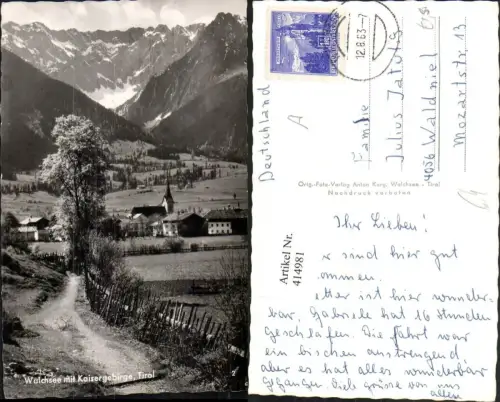 Walchsee mit Kaisergebirge, Tirol
12.8.63-7
Deutschland
Familie
Julius
4056 Waldniel
Mozartstr 13
Orig.-Foto-Verlag Anton Karg, Walchsee - Tirol
Nachdruck verboten
Artikel Nr.
414981
Ihr Lieben!
sind hier gut
ommen.
etter ist hier wunder
bar, Gabriele hat 16 Stunden
geschlafen. Die Fahrt war
ein bischen anstrengend,
aber es hat alles wunderbar
gegangen. Viele Grüsse von uns
allen